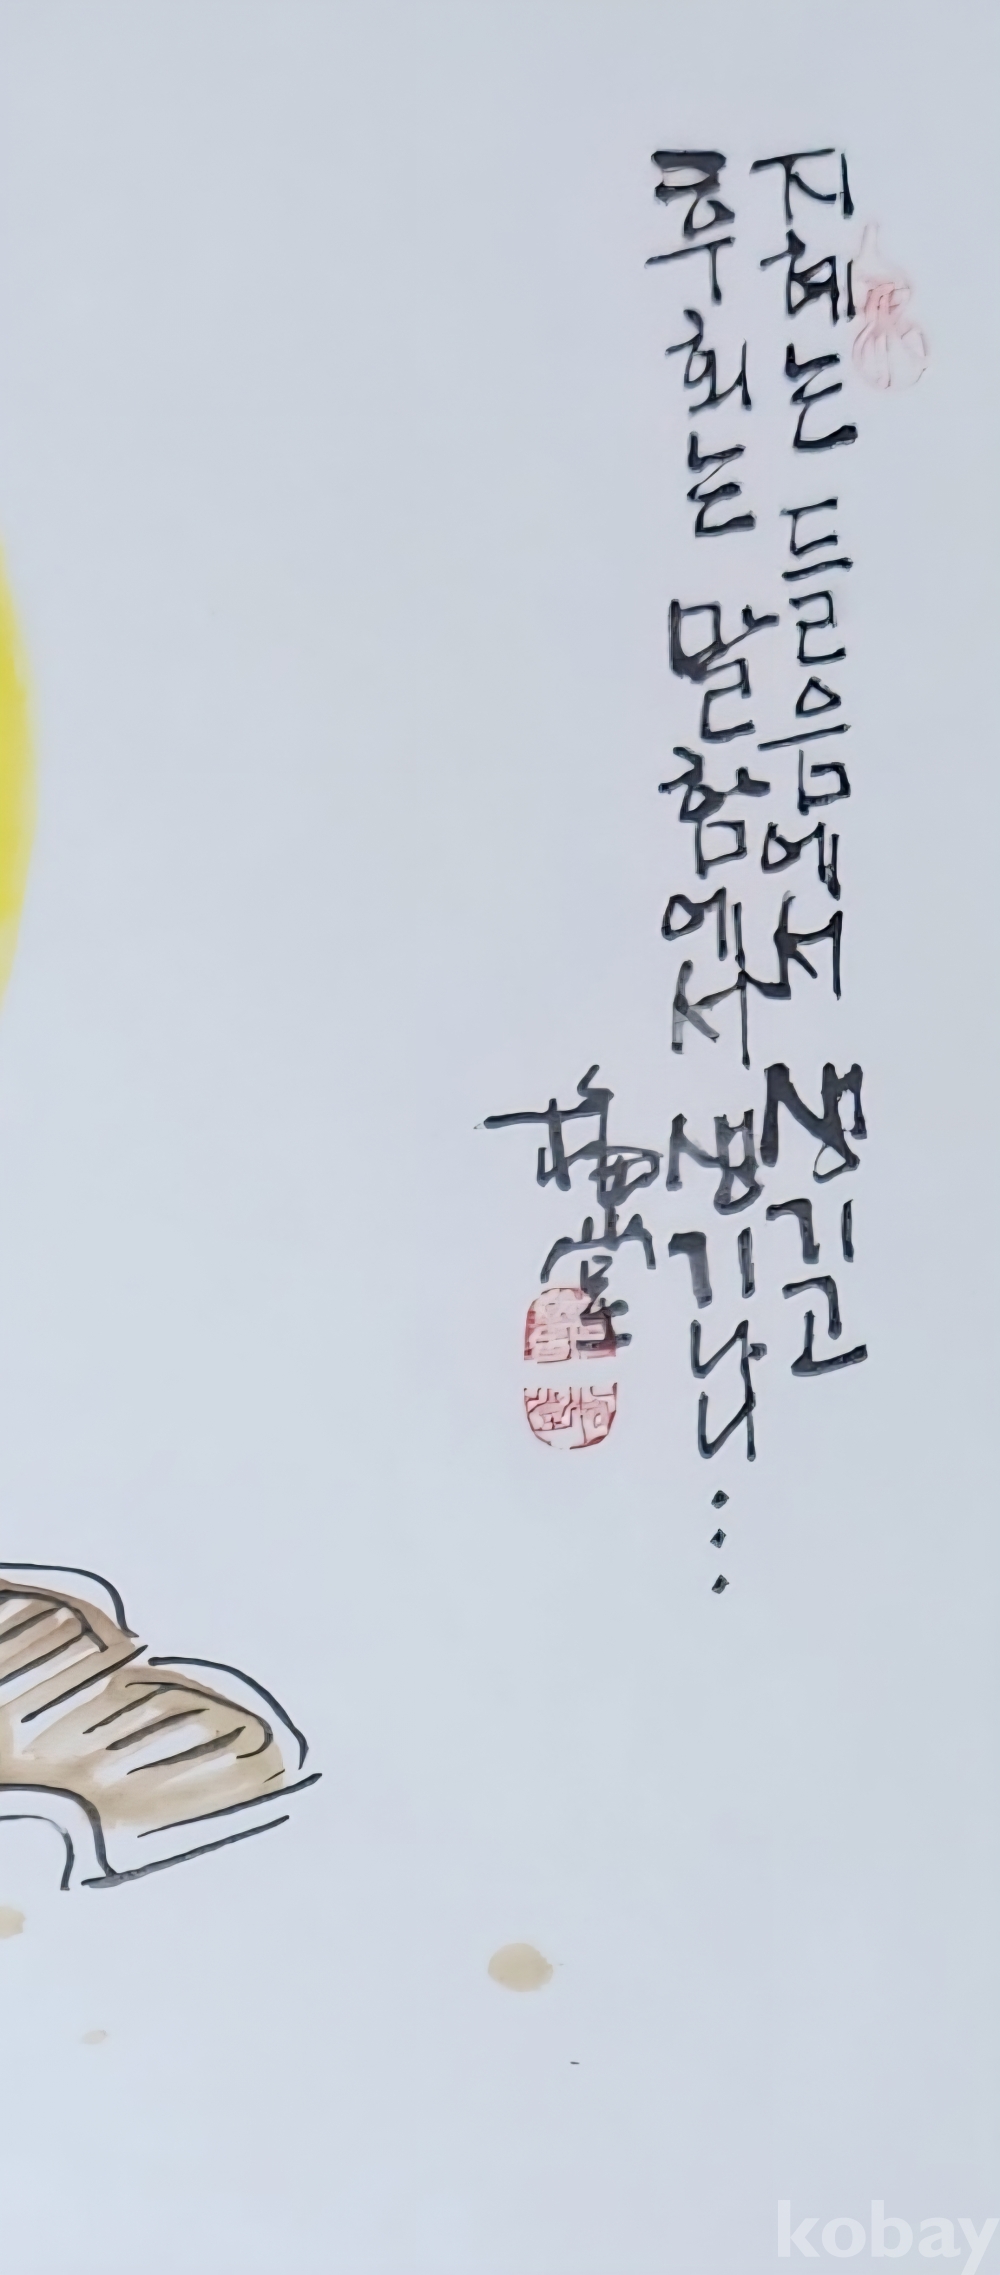 지혜는 드르음에서 생기고
후회는 말함에서 생기나니...
kobay